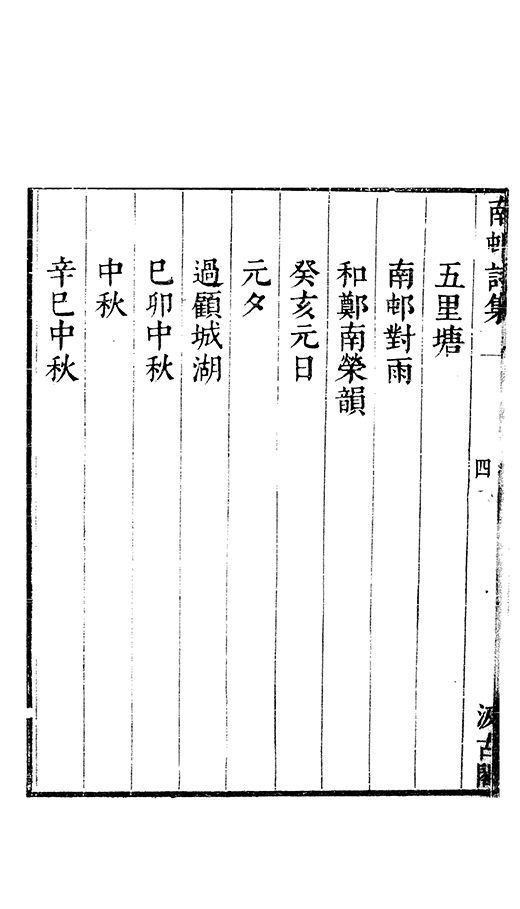 南邨詩集 一 四 汲古閣
五里塘
南邨對雨
和鄭南榮韻
癸亥元日
元夕
過顧城湖
巳卯中秋
中秋
辛巳中秋